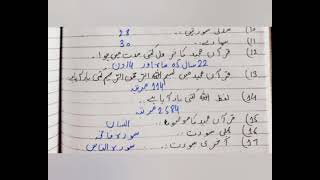 (10 مدنی سورتیں.. 28
(11 سپارے.. 30
(12 قرآن مجید کا نزول کتنی مدت میں ہوا..
22 سال 5 ماہ اور 14 دن
(13 قرآن مجید میں بسم اللہ الرحمٰن الرحیم کتنی بار آیا ہے
114 مرتبہ
(14 لفظ اللہ کتنی بار آیا ہے..
2584 مرتبہ
(15 قرآن مجید کا موضوع.. انسان
(16 پہلی سورت.. سورۃ فاتحہ
(17 آخری سورت.. سورۃ الناس